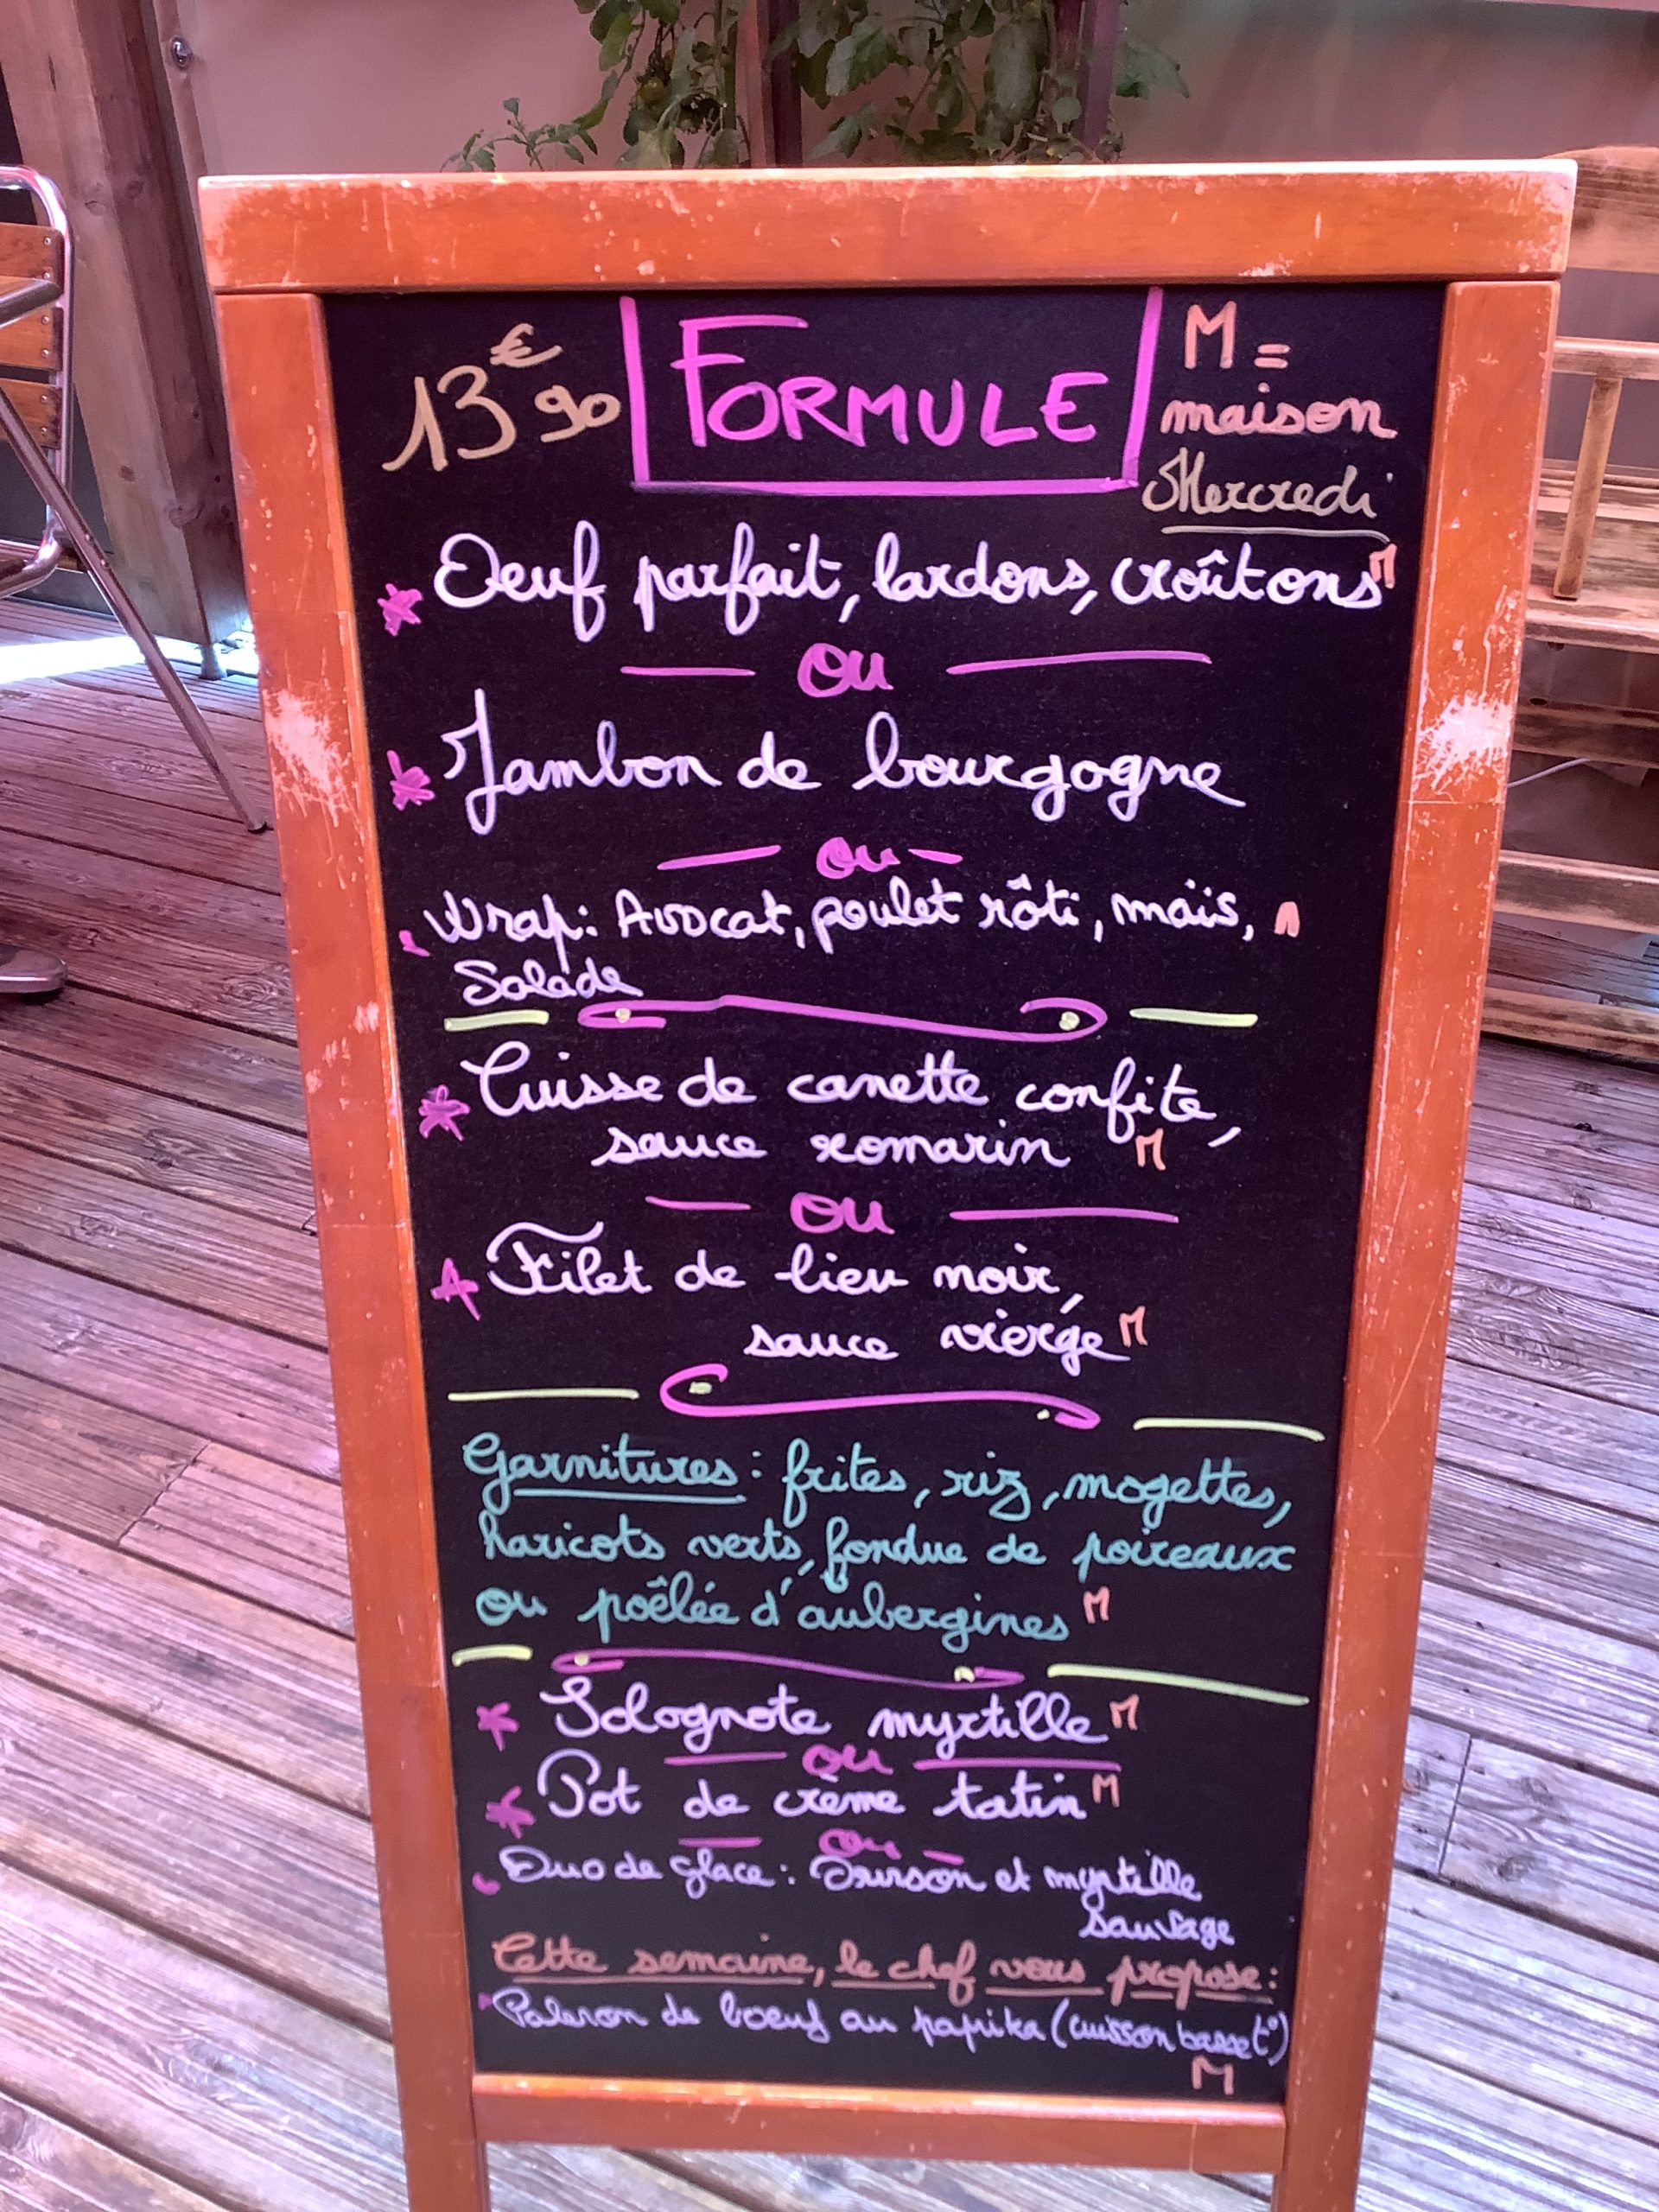 13€90
FORMULE
M =
maison
Mercredi
* Oeuf parfait, lardons, croûtons M
— ou —
* Jambon de bourgogne
— ou —
Wrap: Avocat, poulet rôti, maïs, M
Salade
* Cuisse de canette confite,
sauce romarin M
— ou —
* Filet de lieu noir,
sauce vierge M
Garnitures : frites, riz, mogettes,
haricots verts, fondue de poireaux
ou poêlée d'aubergines M
* Solognote myrtille M
— ou —
* Pot de crème tatin M
— ou —
Duo de glace : Ourson et myrtille
sauvage
Cette semaine, le chef vous propose :
Paleron de boeuf au paprika (cuisson basse t°)
M